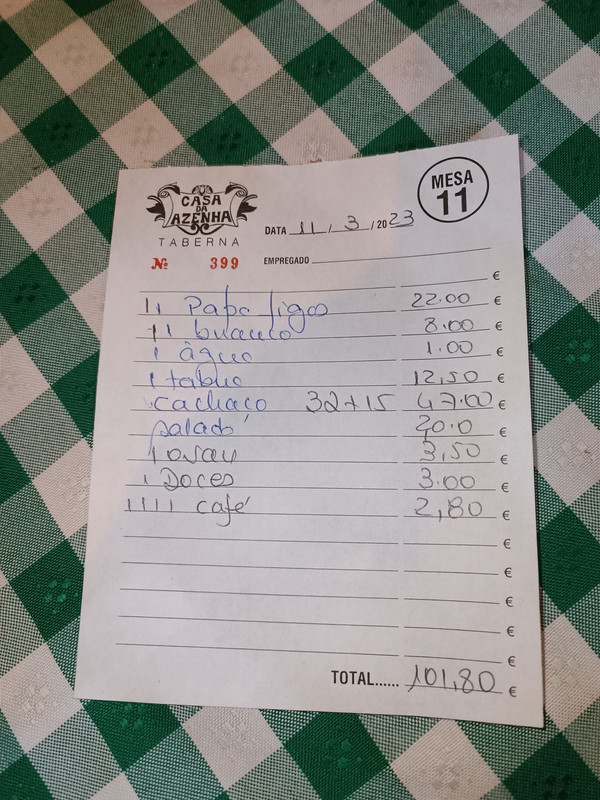 CASA DA AZENHA
TABERNA
MESA 11
DATA 11 / 3 / 2023
Nº 399
EMPREGADO
€
11 Papa figos 22.00 €
11 branco 8.00 €
1 água 1.00 €
1 tabua 12,50 €
cachaço 32+15 47.00 €
salada 20.0 €
1 3,50 €
1 Doces 3.00 €
1111 café 2,80 €
€
€
€
€
€
TOTAL...... 101,80 €